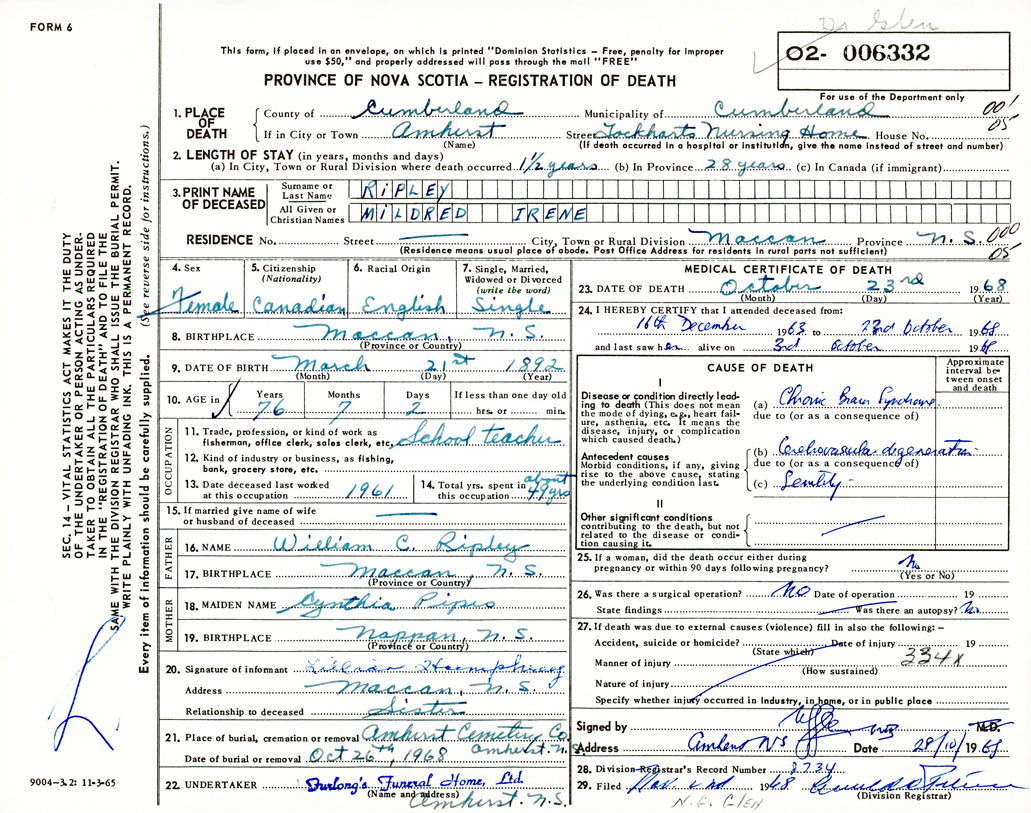 FORM 6
Dr Glen
This form, if placed in an envelope, on which is printed "Dominion Statistics – Free, penalty for improper
use $50," and properly addressed will pass through the mail "FREE"
02- 006332
PROVINCE OF NOVA SCOTIA – REGISTRATION OF DEATH
For use of the Department only
1. PLACE OF DEATH
County of Cumberland Municipality of Cumberland 001
05
If in City or Town Amherst Street Lockharts Nursing Home House No.
(Name) (If death occurred in a hospital or institution, give the name instead of street and number)
2. LENGTH OF STAY (in years, months and days)
(a) In City, Town or Rural Division where death occurred 1½ years (b) In Province 28 years (c) In Canada (if immigrant)
3. PRINT NAME OF DECEASED
Surname or Last Name RIPLEY
All Given or Christian Names MILDRED IRENE
RESIDENCE No. Street City, Town or Rural Division Maccan Province N. S. 000
05
(Residence means usual place of abode. Post Office Address for residents in rural parts not sufficient)
4. Sex Female
5. Citizenship (Nationality) Canadian
6. Racial Origin English
7. Single, Married, Widowed or Divorced (write the word) Single
8. BIRTHPLACE Maccan, N. S.
(Province or Country)
9. DATE OF BIRTH March 21st 1892
(Month) (Day) (Year)
10. AGE in Years 76 Months 7 Days 2 If less than one day old hrs. or min.
OCCUPATION
11. Trade, profession, or kind of work as fisherman, office clerk, sales clerk, etc. School teacher
12. Kind of industry or business, as fishing, bank, grocery store, etc.
13. Date deceased last worked at this occupation 1961
14. Total yrs. spent in this occupation about 49 yrs
15. If married give name of wife or husband of deceased
FATHER
16. NAME William C. Ripley
17. BIRTHPLACE Maccan N. S.
(Province or Country)
MOTHER
18. MAIDEN NAME Cynthia Pipes
19. BIRTHPLACE Nappan, N. S.
(Province or Country)
20. Signature of informant Lillian
Address Maccan, N. S.
Relationship to deceased Sister
21. Place of burial, cremation or removal Amherst Cemetery Co.
Amherst. N. S.
Date of burial or removal Oct 26th, 1968
22. UNDERTAKER Furlong's Funeral Home, Ltd.
(Name and address) Amherst. N. S.
MEDICAL CERTIFICATE OF DEATH
23. DATE OF DEATH October 23rd 1968
(Month) (Day) (Year)
24. I HEREBY CERTIFY that I attended deceased from:
16th December 1963 to 23rd October 1968
and last saw her alive on 3rd October 1968
CAUSE OF DEATH
Approximate interval between onset and death
I
Disease or condition directly leading to death (This does not mean the mode of dying, e.g., heart failure, asthenia, etc. It means the disease, injury, or complication which caused death.)
(a) Chronic Brain Syndrome
due to (or as a consequence of)
Antecedent causes
Morbid conditions, if any, giving rise to the above cause, stating the underlying condition last.
(b) Cerebrovascular degeneration
due to (or as a consequence of)
(c) Senility
II
Other significant conditions
contributing to the death, but not related to the disease or condition causing it.
25. If a woman, did the death occur either during pregnancy or within 90 days following pregnancy? No
(Yes or No)
26. Was there a surgical operation? No Date of operation 19
State findings Was there an autopsy? No
27. If death was due to external causes (violence) fill in also the following: –
Accident, suicide or homicide? Date of injury 19
(State which)
334X
Manner of injury
(How sustained)
Nature of injury
Specify whether injury occurred in Industry, in home, or in public place
Signed by M.D.
Address Amherst NS Date 28/10/1968
28. Division Registrar's Record Number 8734
29. Filed Nov. 1968
(Division Registrar)
N. E. GLEN
SEC. 14 – VITAL STATISTICS ACT MAKES IT THE DUTY
OF THE UNDERTAKER OR PERSON ACTING AS UNDER-
TAKER TO OBTAIN ALL THE PARTICULARS REQUIRED
IN THE "REGISTRATION OF DEATH" AND TO FILE THE
SAME WITH THE DIVISION REGISTRAR WHO SHALL ISSUE THE BURIAL PERMIT.
WRITE PLAINLY WITH UNFADING INK. THIS IS A PERMANENT RECORD.
Every item of information should be carefully supplied. (See reverse side for instructions.)
9004-3.2: 11-3-65